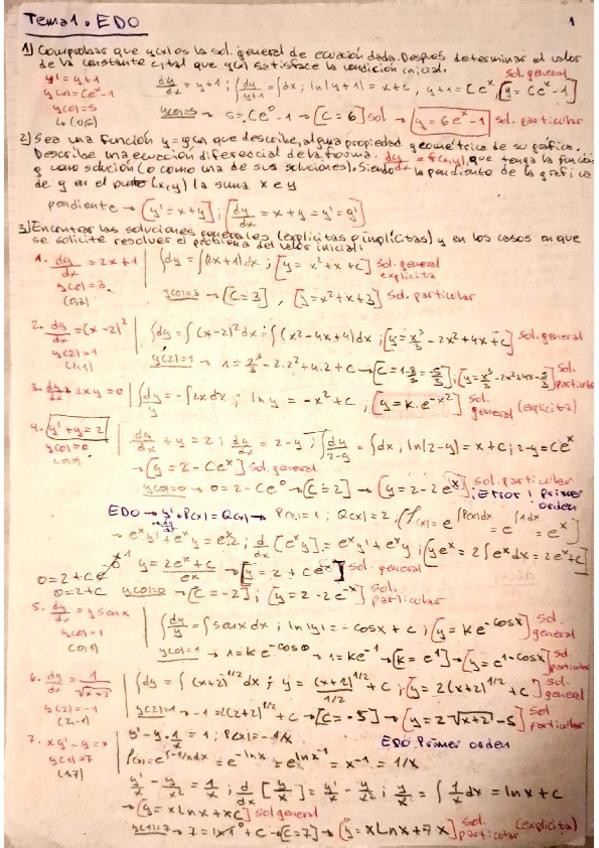 Tema 1. EDO 1
1) Comprobar que y(x) es la sol. general de ecuación dada. Después determinar el valor
de la constante c, tal que y(x) satisface la condición inicial.
y' = y+1
y(x) = Ce^x - 1
y(0) = 5
(0,5)
dy/dx = y+1; ∫dy/(y+1) = ∫dx; ln|y+1| = x+c, y+1 = Ce^x, [y = Ce^x - 1] sol. general
y(0)=5 → 5 = Ce^0 - 1 → [C = 6] sol → [y = 6e^x - 1] sol. particular
2) Sea una función y = g(x) que describe, alguna propiedad geométrica de su gráfica.
Describe una ecuación diferencial de la forma dy/dx = f(x,y), que tenga la función
g como solución (o como una de sus soluciones). Siendo la pendiente de la gráfica
de g en el punto (x,y) la suma x e y
pendiente → [y' = x+y]; [dy/dx = x+y = y' = g']
3) Encontrar las soluciones generales (explícitas o implícitas) y en los casos en que
se solicite resolver el problema del valor inicial:
1. dy/dx = 2x+1
y(0) = 3
(0,3)
∫dy = ∫(2x+1)dx; [y = x^2+x+c] sol. general explícita
y(0)=3 → [C = 3], [y = x^2+x+3] sol. particular
2. dy/dx = (x-2)^2
y(2) = 1
(2,1)
∫dy = ∫(x-2)^2 dx = ∫(x^2-4x+4)dx; [y = x^3/3 - 2x^2+4x+c] sol. general
y(2)=1 → 1 = 2^3/3 - 2.2^2+4.2+c → [C = 1-8/3 = -5/3]; [y = x^3/3 - 2x^2+4x-5/3] sol. particular
3. dy/dx + 2xy = 0
∫dy/y = -∫2x dx; ln y = -x^2+c, [y = k.e^{-x^2}] sol. general (explícita)
4. [y'+y = 2]
y(0) = 0
(0,0)
dy/dx + y = 2; dy/dx = 2-y, ∫dy/(2-y) = ∫dx, ln|2-y| = x+c; 2-y = Ce^x
→ [y = 2-Ce^x] sol. general
y(0)=0 → 0 = 2-Ce^0 → [C = 2] → [y = 2-2e^x] sol. particular
¡Error! Primer orden
EDO → y'+P(x) = Q(x) → P(x) = 1; Q(x) = 2, f(x) = e^{∫P(x)dx} = e^{∫1dx} = e^x
→ e^x y' + e^x y = e^x 2; d/dx [e^x y] = e^x y' + e^x y; [ye^x = 2∫e^x dx = 2e^x+c]
y = (2e^x+c)/e^x → [y = 2+Ce^{-x}] sol. general
0 = 2+Ce^0
0 = 2+C
y(0)=0 → [C = -2]; [y = 2-2e^{-x}] sol. particular
5. dy/dx = y senx
y(0) = 1
(0,1)
∫dy/y = ∫senx dx; ln|y| = -cosx+c; [y = ke^{-cosx}] sol. general
y(0)=1 → 1 = ke^{-cos0} → 1 = ke^{-1} → [k = e^1] → [y = e^{1-cosx}] sol. particular
6. dy/dx = 1/√(x+2)
y(2) = -1
(2,-1)
∫dy = ∫(x+2)^{-1/2} dx; y = (x+2)^{1/2}/(1/2) + c; [y = 2(x+2)^{1/2}+c] sol. general
y(2)=-1 → -1 = 2(2+2)^{1/2}+c → [C = -5] → [y = 2√(x+2) - 5] sol. particular
7. xy'-y = x
y(1) = 7
(1,7)
y'-y.1/x = 1; P(x) = -1/x EDO Primer orden
P(x) = e^{∫-1/x dx} = e^{-lnx} = e^{lnx^{-1}} = x^{-1} = 1/x
y'/x - y/x^2 = 1/x; d/dx [y/x] = y'/x - y/x^2; y/x = ∫1/x dx = lnx+c
→ [y = xLnx+xC] sol general
y(1)=7 → 7 = ln1+c → [C = 7] → [y = xLnx+7x] sol. particular (explícita)